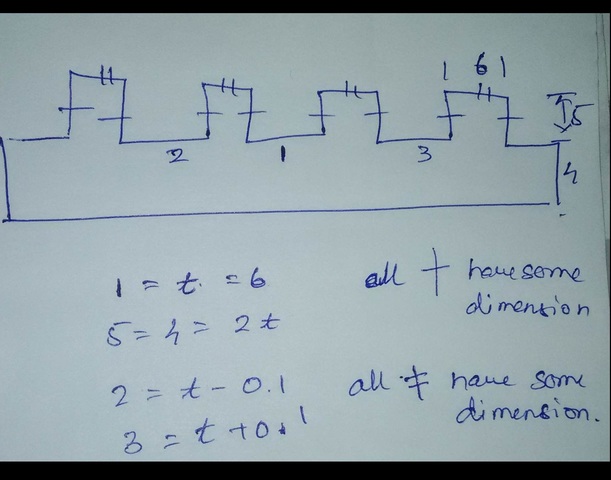 1 6 1
5
2 1 3 4
1 = t. = 6 all + have same
dimension
5 = 4 = 2t
2 = t - 0.1 all ≠ have same
dimension.
3 = t + 0.1